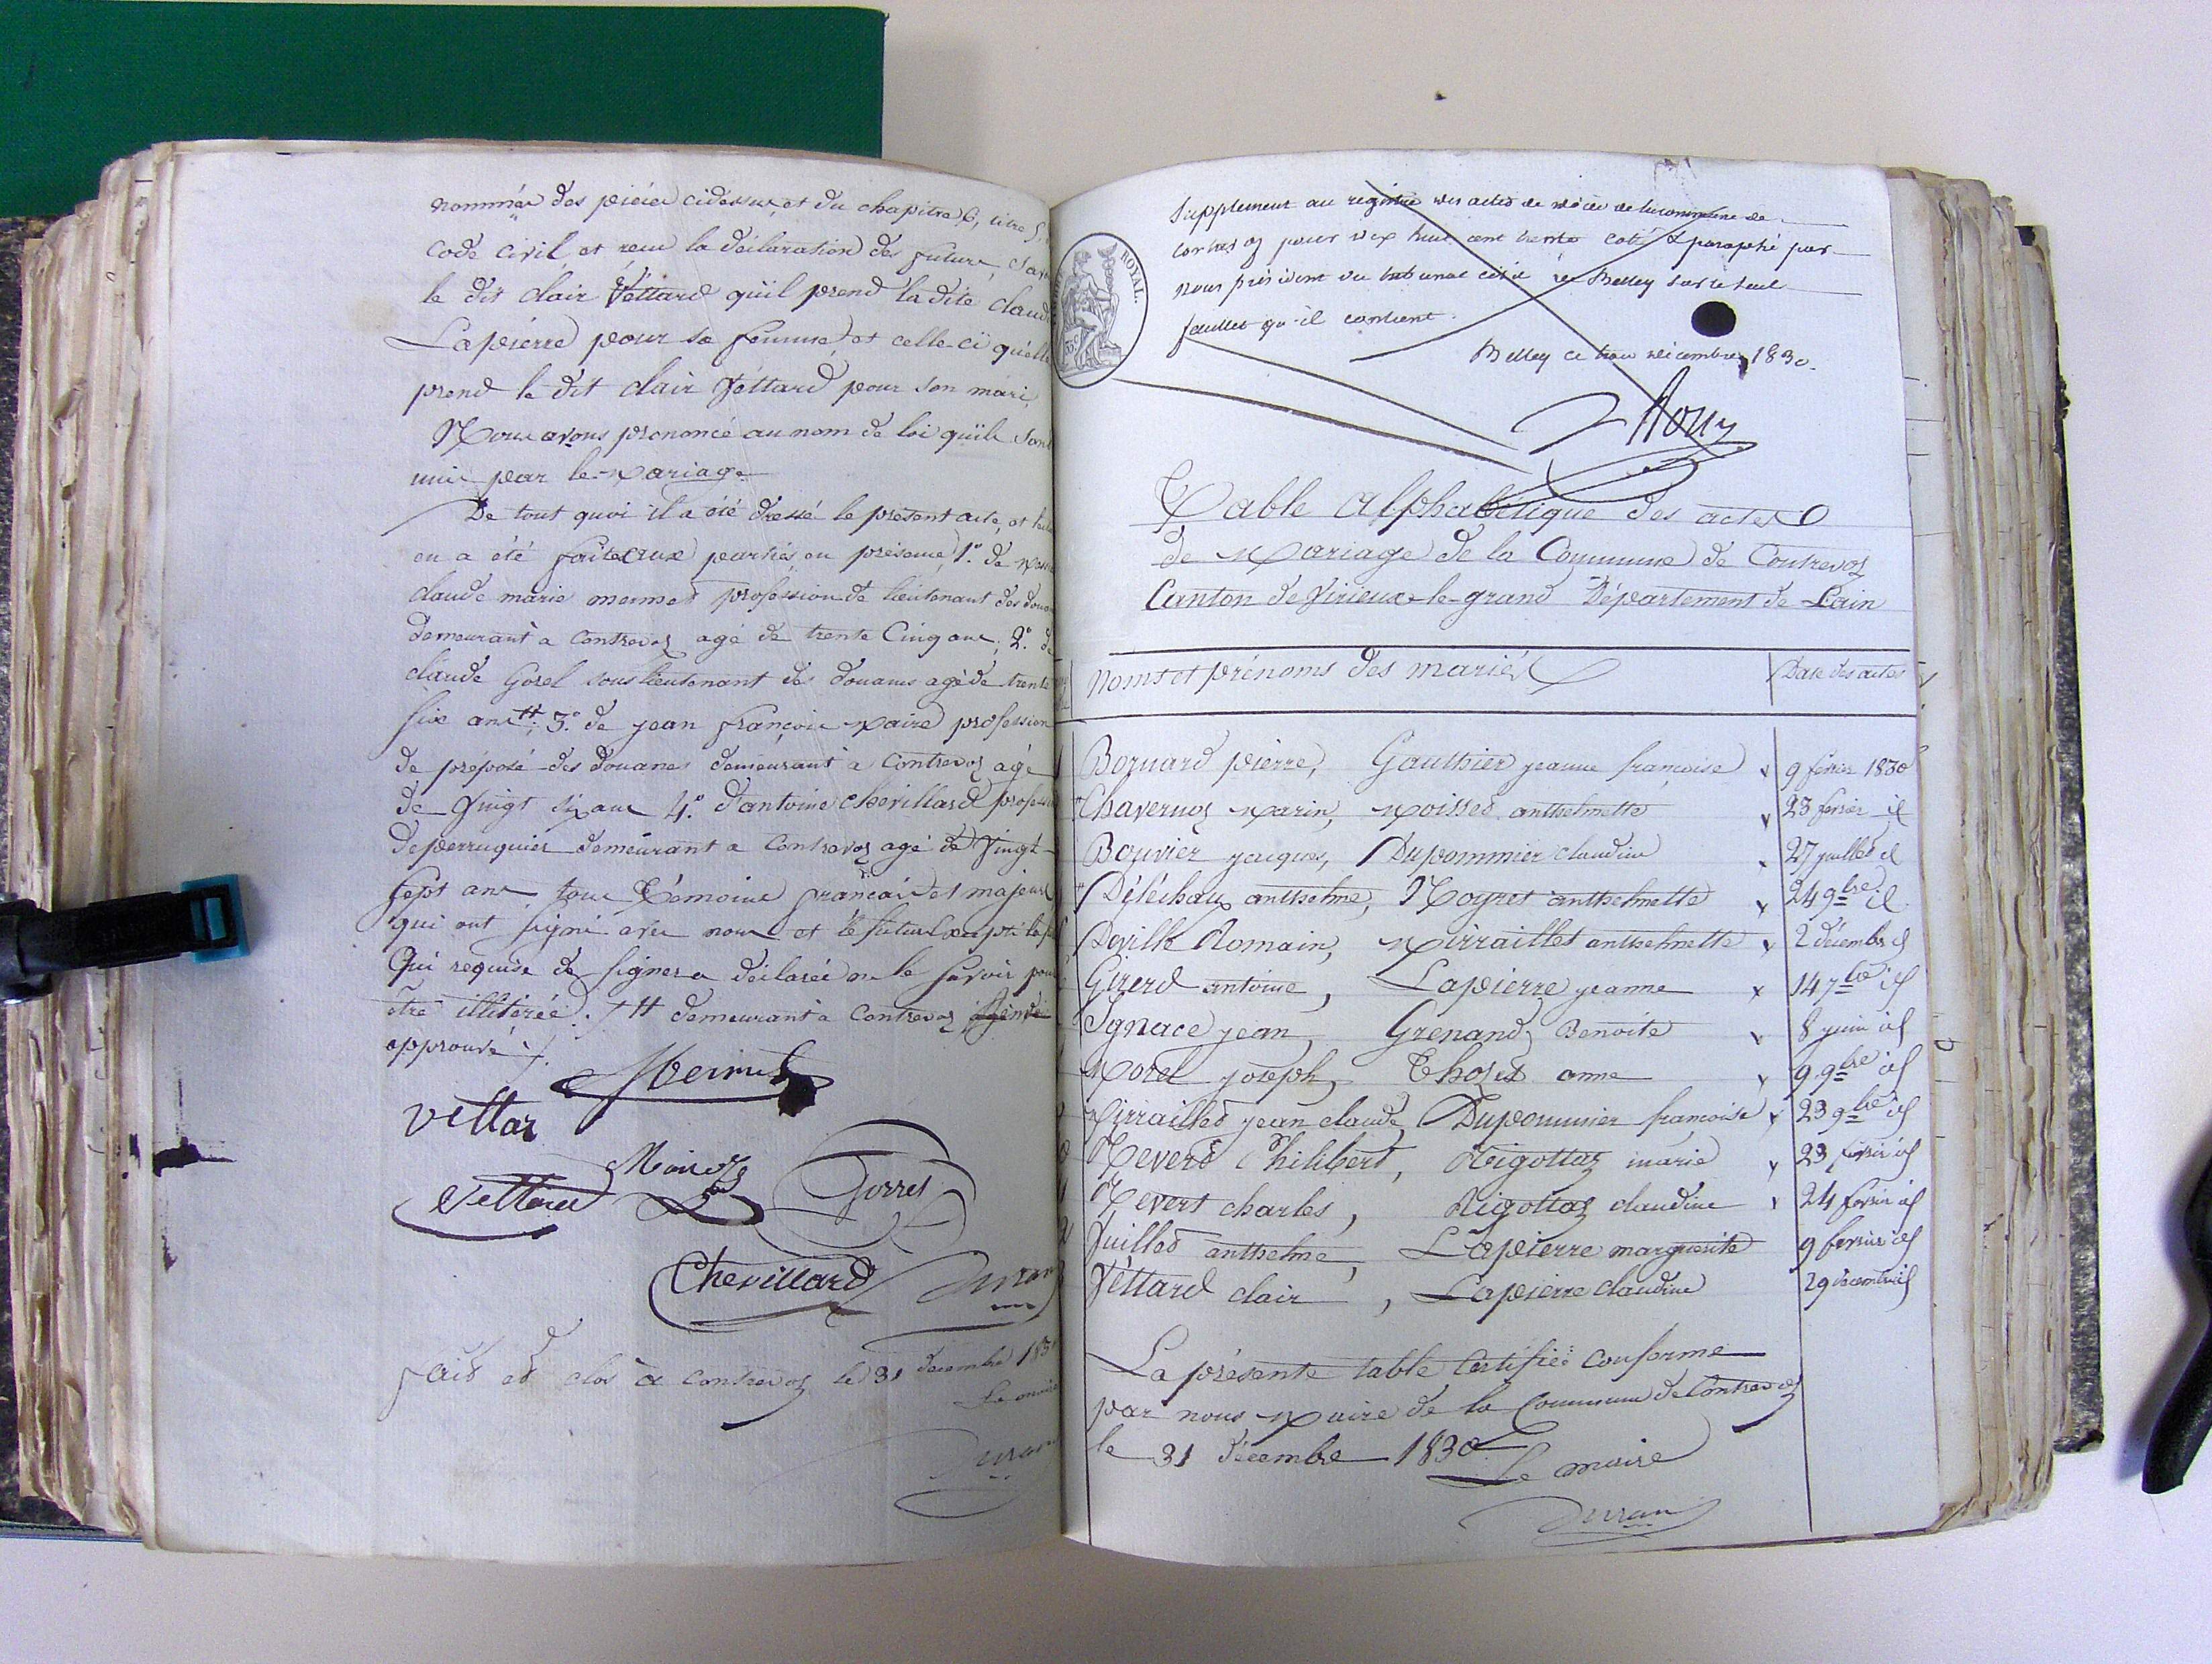 nommée des pièces cidessus, et du chapitre 6, titre 5,
code civil, et reçu la déclaration des futurs,
le dit clair Vettard qu'il prend la dite
Lapierre pour sa femme, et celle-ci qu'elle
prend le dit clair Vettard pour son mari,
Nous avons prononcé au nom de loi qu'ils sont
unis par le mariage
De tout quoi il a été dressé le présent acte, et
en a été faite aux parties en présence, 1.° de
claude marie mermet profession de lieutenant des
demeurant a Contrevoz agé de trente Cinq ans, 2.°
claude Gorel sous lieutenant des douanes agé de trente
six ans # 3.° de jean françois maire profession
de préposé des douanes demeurant à Contrevoz agé
de vingt six ans 4.° d'antoine Chevillard
de perruquier demeurant a Contrevoz agé de vingt
sept ans, tous témoins français et majeurs
qui ont signé avec nous et le futur excepté la
Qui requise de signer a déclarée ne le savoir pour
être illitérée. / # demeurant à Contrevoz
approuvé /.
Vettar
Vettard
Chevillard
Duran
fait et clos à Contrevoz le 31 décembre
Le maire
Duran
Supplement au registre des actes de de la commune de
Contrevoz pour dix huit cent trente coté & paraphé par
nous président du tribunal civil de Belley sur le seul
feuillet qu'il contient.
Belley ce trois décembre, 1830.
ROYAL.
Table Alphabétique des actes
de mariage de la Commune de Contrevoz
Canton de Virieux-le-grand Département de Lain
Noms et prénoms des mariés Date des actes
Bornard pierre, Gauthier jeanne françoise 9 février 1830
Chavernoz marin, moisset anthelmette 23 février id
Bouvier jacques, Dupommier claudine 27 juillet id
Déléchaux anthelme, Moyret anthelmette 24 9bre id
Deville Romain, mirraillet anthelmette 2 décembre id
Girerd antoine, Lapierre jeanne 14 7bre id
Ignace jean, Grenand Benoite 8 juin id
Morel joseph, Thozet anne 9 9bre id
Mirraillet jean claude, Dupommier françoise 23 9bre id
Nevert Philibert, Rigottaz marie 23 février id
Nevert charles, Rigottaz claudine 24 février id
Vuillet anthelme, Lapierre marguerite 9 février id
Vettard clair, Lapierre claudine 29 décembre id
La présente table Certifiée conforme
par nous maire de la Commune de Contrevoz
le 31 décembre 1830
Le maire
Duran